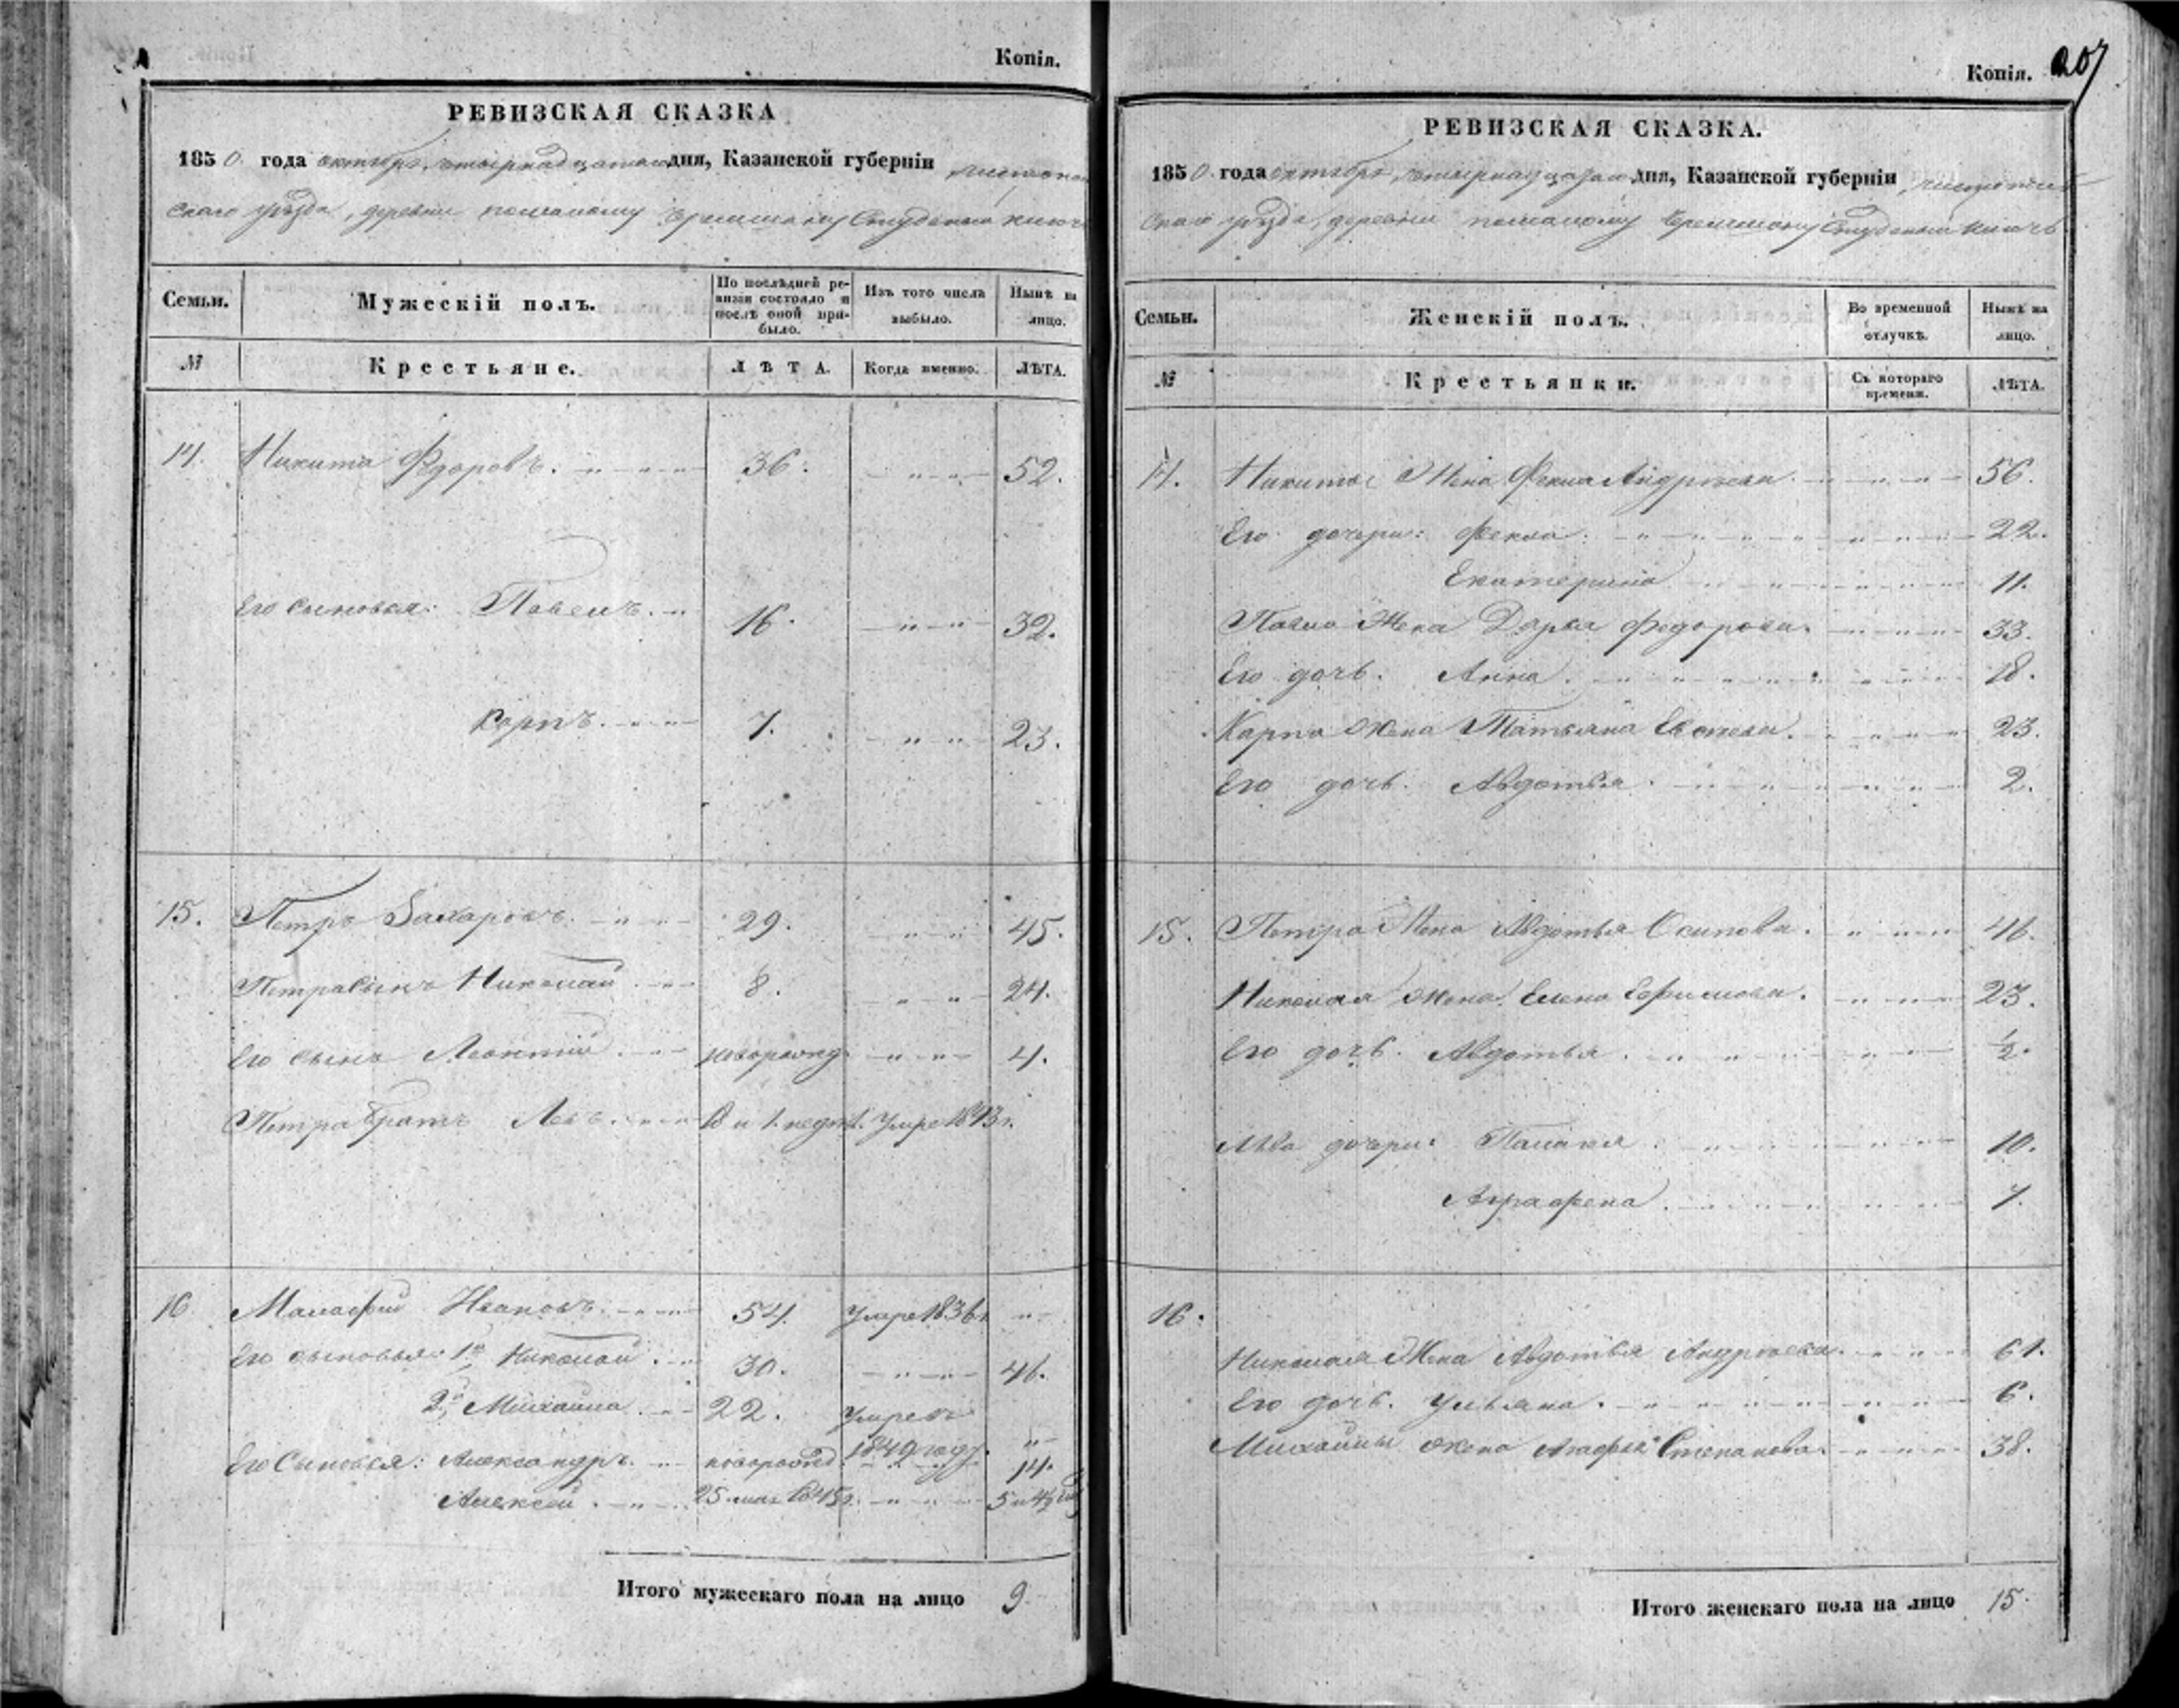 Копія.
РЕВИЗСКАЯ СКАЗКА
1850 года октября четырнадцатаго дня, Казанской губерніи чистополь
скаго уѣзда, деревни помалому Черемшану Студеный ключь
Семьи.
Мужескій полъ.
По послѣдней ре-
визіи состояло и
послѣ оной при-
было.
Изъ того числа
выбыло.
Нынѣ на
лицо.
№
Крестьяне.
ЛѢТА.
Когда именно.
ЛѢТА.
14. Никита Федоровъ. 36. 52.
Его сыновья: Павелъ. 16. 32.
Карпъ. 7. 23.
15. Петръ Захаровъ. 29. 45.
Петра сынъ Николай 8. 24.
Его сынъ Леонтій новорожд 4.
Петра братъ Левъ. 18 и 1. недѣл. умре 1843 г.
16 Малафей Ивановъ. 54. умре 1836 г
Его сыновья: 1й Николай. 30. 46.
2й Михайла 22. умре въ
1849 году.
Его сыновья: Александръ новорожд 14.
Алексей. 25 мая 1845 г. 5 и 4½
Итого мужескаго пола на лицо 9
Копія. 207
РЕВИЗСКАЯ СКАЗКА.
1850 года октября четырнадцатаго дня, Казанской губерніи, чистополь
скаго уѣзда, деревни помалому Черемшану Студеный ключь
Семьи.
Женскій полъ.
Во временной
отлучкѣ.
Нынѣ на
лицо.
№
Крестьянки.
Съ котораго
времени.
ЛѢТА.
14. Никиты жена Фекла Андреева 56.
Его дочери: Фекла. 22.
Екатерина 11.
Павла жена Дарья Федорова. 33.
Его дочь. Анна. 18.
Карпа жена Татьяна Евстева. 23.
Его дочь. Авдотья. 2.
15. Петра жена Авдотья Осипова. 46.
Николая жена Елена Ефимова. 23.
Его дочь. Авдотья. ½.
Льва дочери: Палагея 10.
Аграфена. 7.
16.
Николая жена Авдотья Андреева. 61.
Его дочь. Ульяна. 6.
Михайлы жена Агафья Степанова. 38.
Итого женскаго пола на лицо 15.